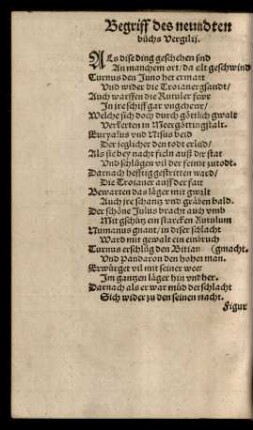 Begriff des neundten
büchs Vergilij.
ALs dise ding geschehen sind
An manchem ort / da eilt geschwind
Turnus den Juno her ermant
Und wider die Troianer gsandt /
Auch warffen die Rutuler fewr
In ire schiff gar ungeheur /
Welche sich doch durch götlich gwalt
Verkerten in Meergöttin gstalt.
Euryalus und Nisus beid
Der ieglicher den todt erleid /
Als sie bey nacht fieln auß der stat
Und schlügen vil der feinde zu todt.
Darnach hefftig gestritten ward /
Die Troianer auff der fart
Bewarten das läger mit gwalt
Auch ire schantz und gräben bald.
Der schöne Julus bracht auch umb
Mit gschütz ein starcken Rutulum
Numanus gnant / in diser schlacht
Ward mit gewalt ein einbruch
Turnus erschlüg den Bitian (gmacht.
Und Pandaron den hohen man.
Erwürget vil mit seiner weer
Im gantzen läger hin und her.
Darnach als er war müd der schlacht
Sich wider zu den seinen macht.
Figur